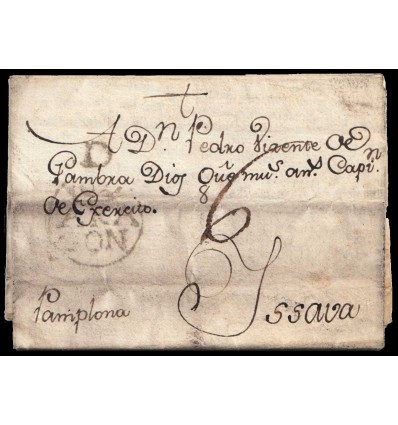 A Dn. Pedro Vizente de
Gambra Dios Que. mus. ans. Capin.
8
de Exercito.
6
D
ON
Pamplona
Yssava